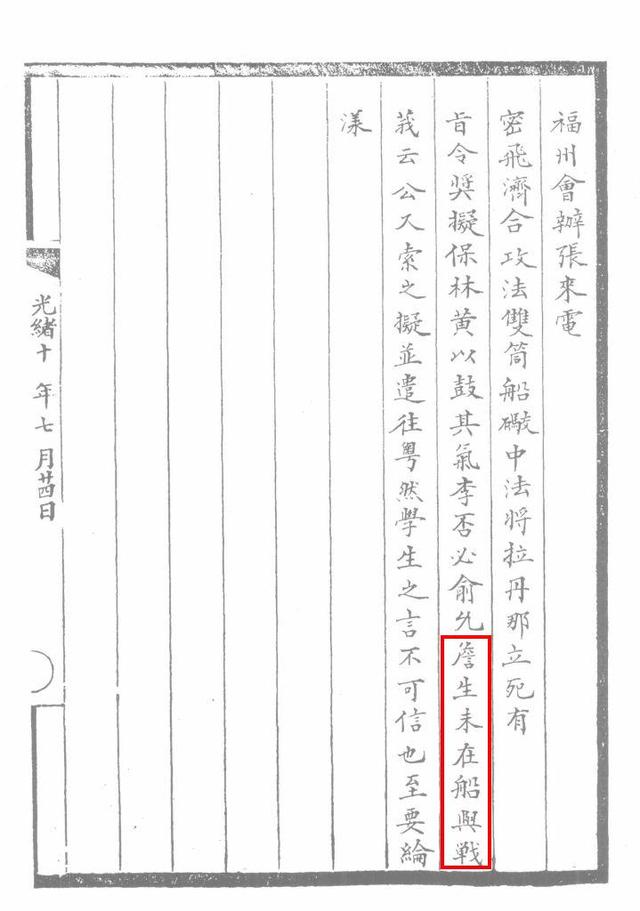 福州會辦張來電
密飛濟合攻法雙筒船礮中法將拉丹那立死有
旨令獎擬保林黃以鼓其氣李否必俞允詹生未在船與戰
莪云公又索之擬並遣往粤然學生之言不可信也至要綸
漾
光緒十年七月廿四日